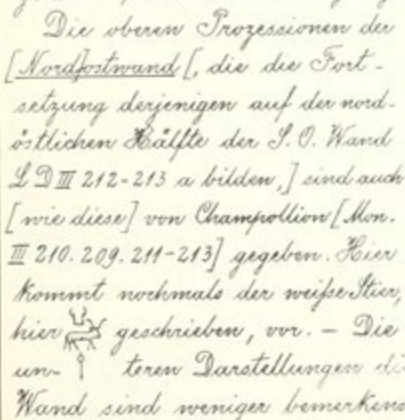 Die oberen Prozessionen der
[Nord]ostwand [, die die Fort-
setzung derjenigen auf der nord-
östlichen Hälfte der S. O. Wand
L D III 212-213 a bilden,] sind auch
[wie diese] von Champollion [Mon.
III 210. 209. 211-213] gegeben. Hier
kommt nochmals der weiße Stier,
hier geschrieben, vor. – Die
un- teren Darstellungen di
Wand sind weniger bemerkens